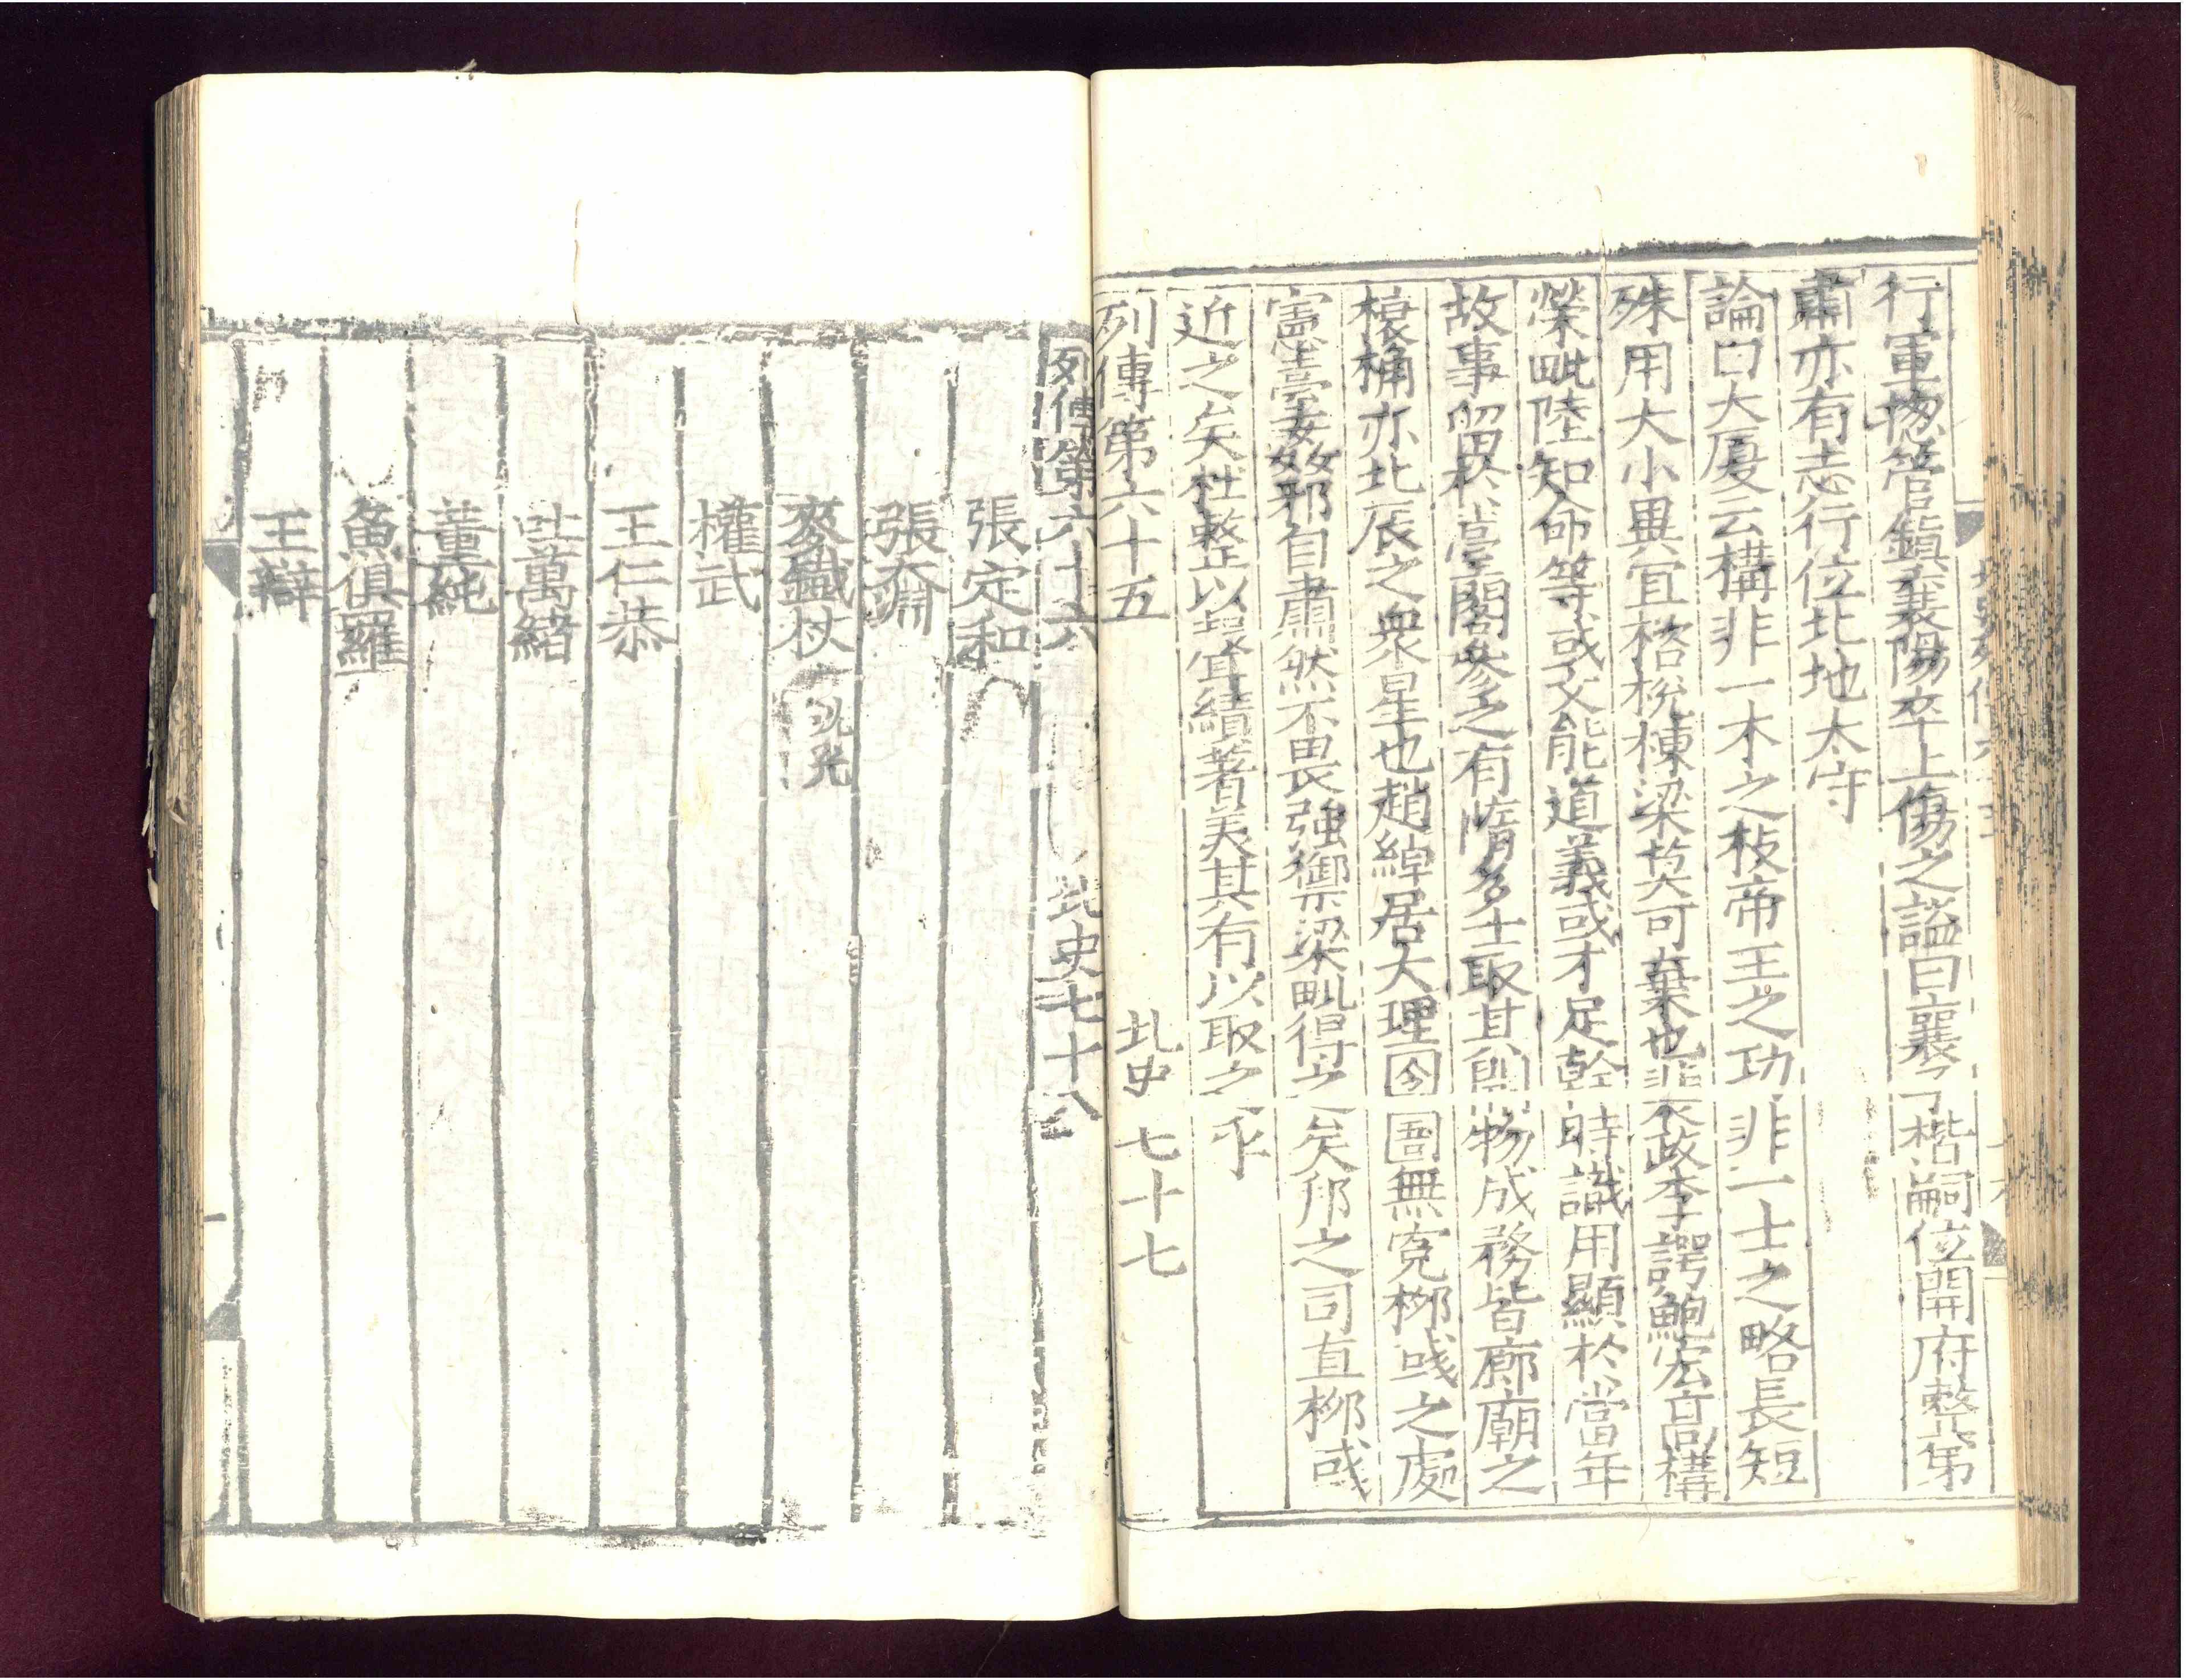 行軍揔管鎮襄陽卒上傷之謚曰襄子楷嗣位開府整弟
肅亦有志行位北地太守
論曰大厦云構非一木之枝帝王之功非一士之略長短
殊用大小異宜楶梲棟梁莫可棄也李諤鮑宏高構
榮毗陸知命等或文能道義或才足幹時識用顯於當年
故事留於臺閣參之有隋多士取其開物成務皆廊廟之
榱桷亦北辰之衆星也趙綽居大理囹圄無寃柳彧之處
憲臺姦邪自肅然不畏強禦梁毗得之矣邦之司直柳彧
近之矣杜整以聲宦績著美其有以取之乎
列傳第六十五 北史 七十七
列傳第六十六 北史七十八
張定和
張奫
麥鐵杖
權武
王仁恭
吐萬緒
董純
魚俱羅
王辯